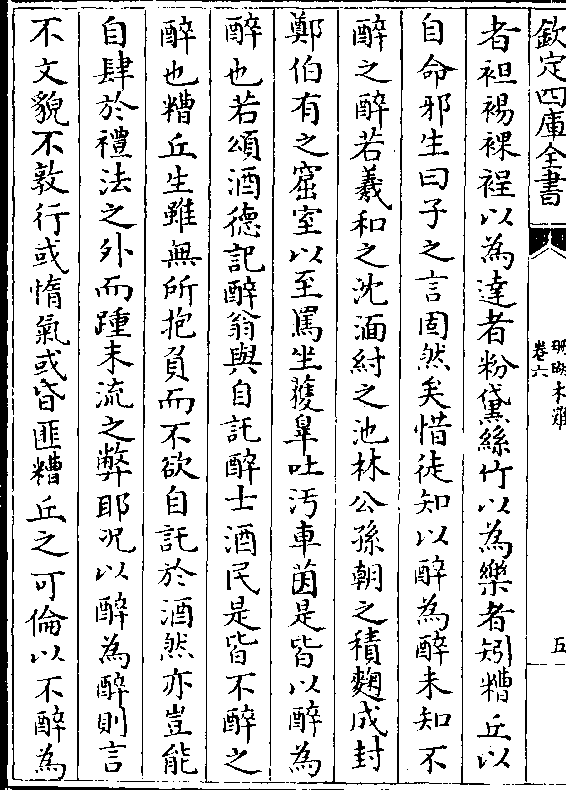 欽定四庫全書
珊瑚木難
卷六
五
者袒裼裸裎以為達者粉黛絲竹以為樂者矧糟丘以
自命邪生曰子之言固然矣惜徒知以醉為醉未知不
醉之醉若羲和之沈湎紂之池林公孫朝之積麴成封
鄭伯有之窟室以至罵坐蒦辠吐汚車茵是皆以醉為
醉也若頌酒德記醉翁與自託醉士酒民是皆不醉之
醉也糟丘生雖無所抱負而不欲自託於酒然亦豈能
自肆於禮法之外而踵末流之弊耶况以醉為醉則言
不文貌不敦行或惰氣或昏匪糟丘之可倫以不醉為